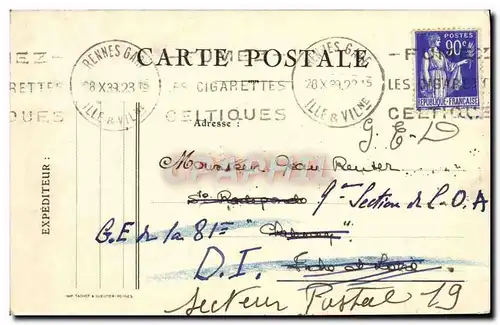 CARTE POSTALE
RENNES GARE
28 X 39 23 15
ILLE & VILNE
FUMEZ
LES CIGARETTES
CELTIQUES
RENNES GARE
28 X 39 23 15
ILLE & VILNE
POSTES
90c
REPUBLIQUE-FRANÇAISE
LES CIGARETTES
CELTIQUES
G.E-D
Adresse :
Monsieur Jean
9me Section de L.O.A
G.E de la 81e
D.I.
Indre et Loire
Secteur Postal 19
EXPÉDITEUR :